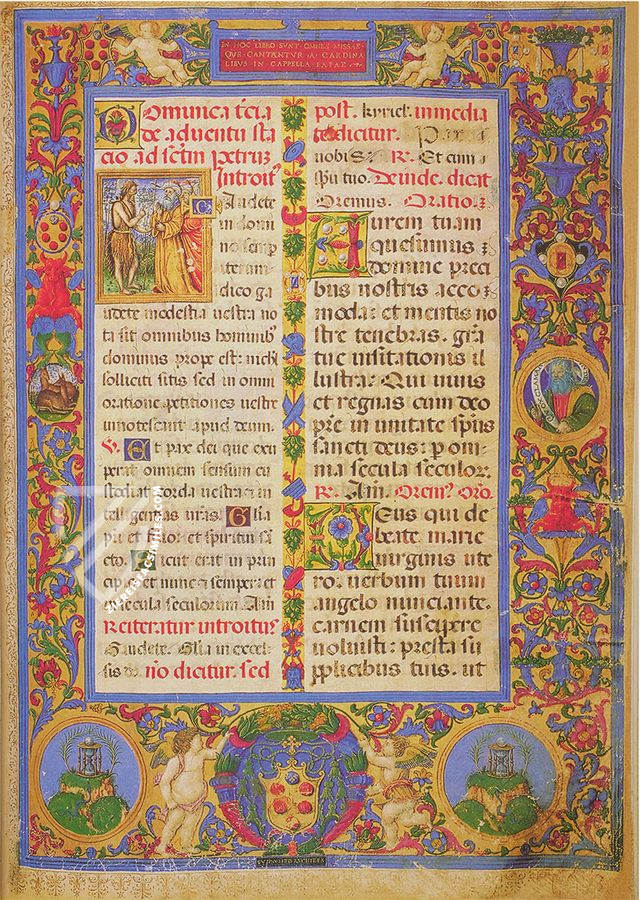 IN HOC LIBRO SVNT OMNES MISSAE
QVE CANTANTVR A CARDINA
LIBVS IN CAPPELLA PAPAE
Dominica t͠cia
de aduentu sta
cio ad sc͠tm petruȝ
Introit9
Gaudete
in domi
no semp
iterum
dico ga
udete modestia uestra no
ta sit omnibus hominib9
dominus prope est: nichil
solliciti sitis sed in omni
oratione petitiones uestre
innotescant apud deum.
Et pax dei que exu
perat omnem sensum cu
stodiat corda uestra et in
telligentias u͠ras. Glia
p͠ri et filio et spiritui sã
cto. Sicut erat in prin
cipio et nunc et semper et
secula seculorum. Am͠
Reiteratur introitus
Gaudete. Gl͠ia in excel
sis do. nõ dicitur. sed
post. kyriel. immedia
te dicitur. Pax
uobis. R. Et cum s
p͠u tuo. Deinde. dicat
Oremus. Oratio.
Aurem tuam
quesumus
domine preci
bus nostris acco
moda: et mentis no
stre tenebras. gra
tie uisitationis il
lustra: Qui uiuis
et regnas cum deo
p͠re in unitate sp͠us
sancti deus: p om
nia secula seculoȝ.
R. Am͠. Orem9. Oro.
Deus qui de
beate marie
uirginis ute
ro. uerbum tuum
angelo nunciante.
carnem suscipere
uoluisti: presta su
pplicibus tuis. ut